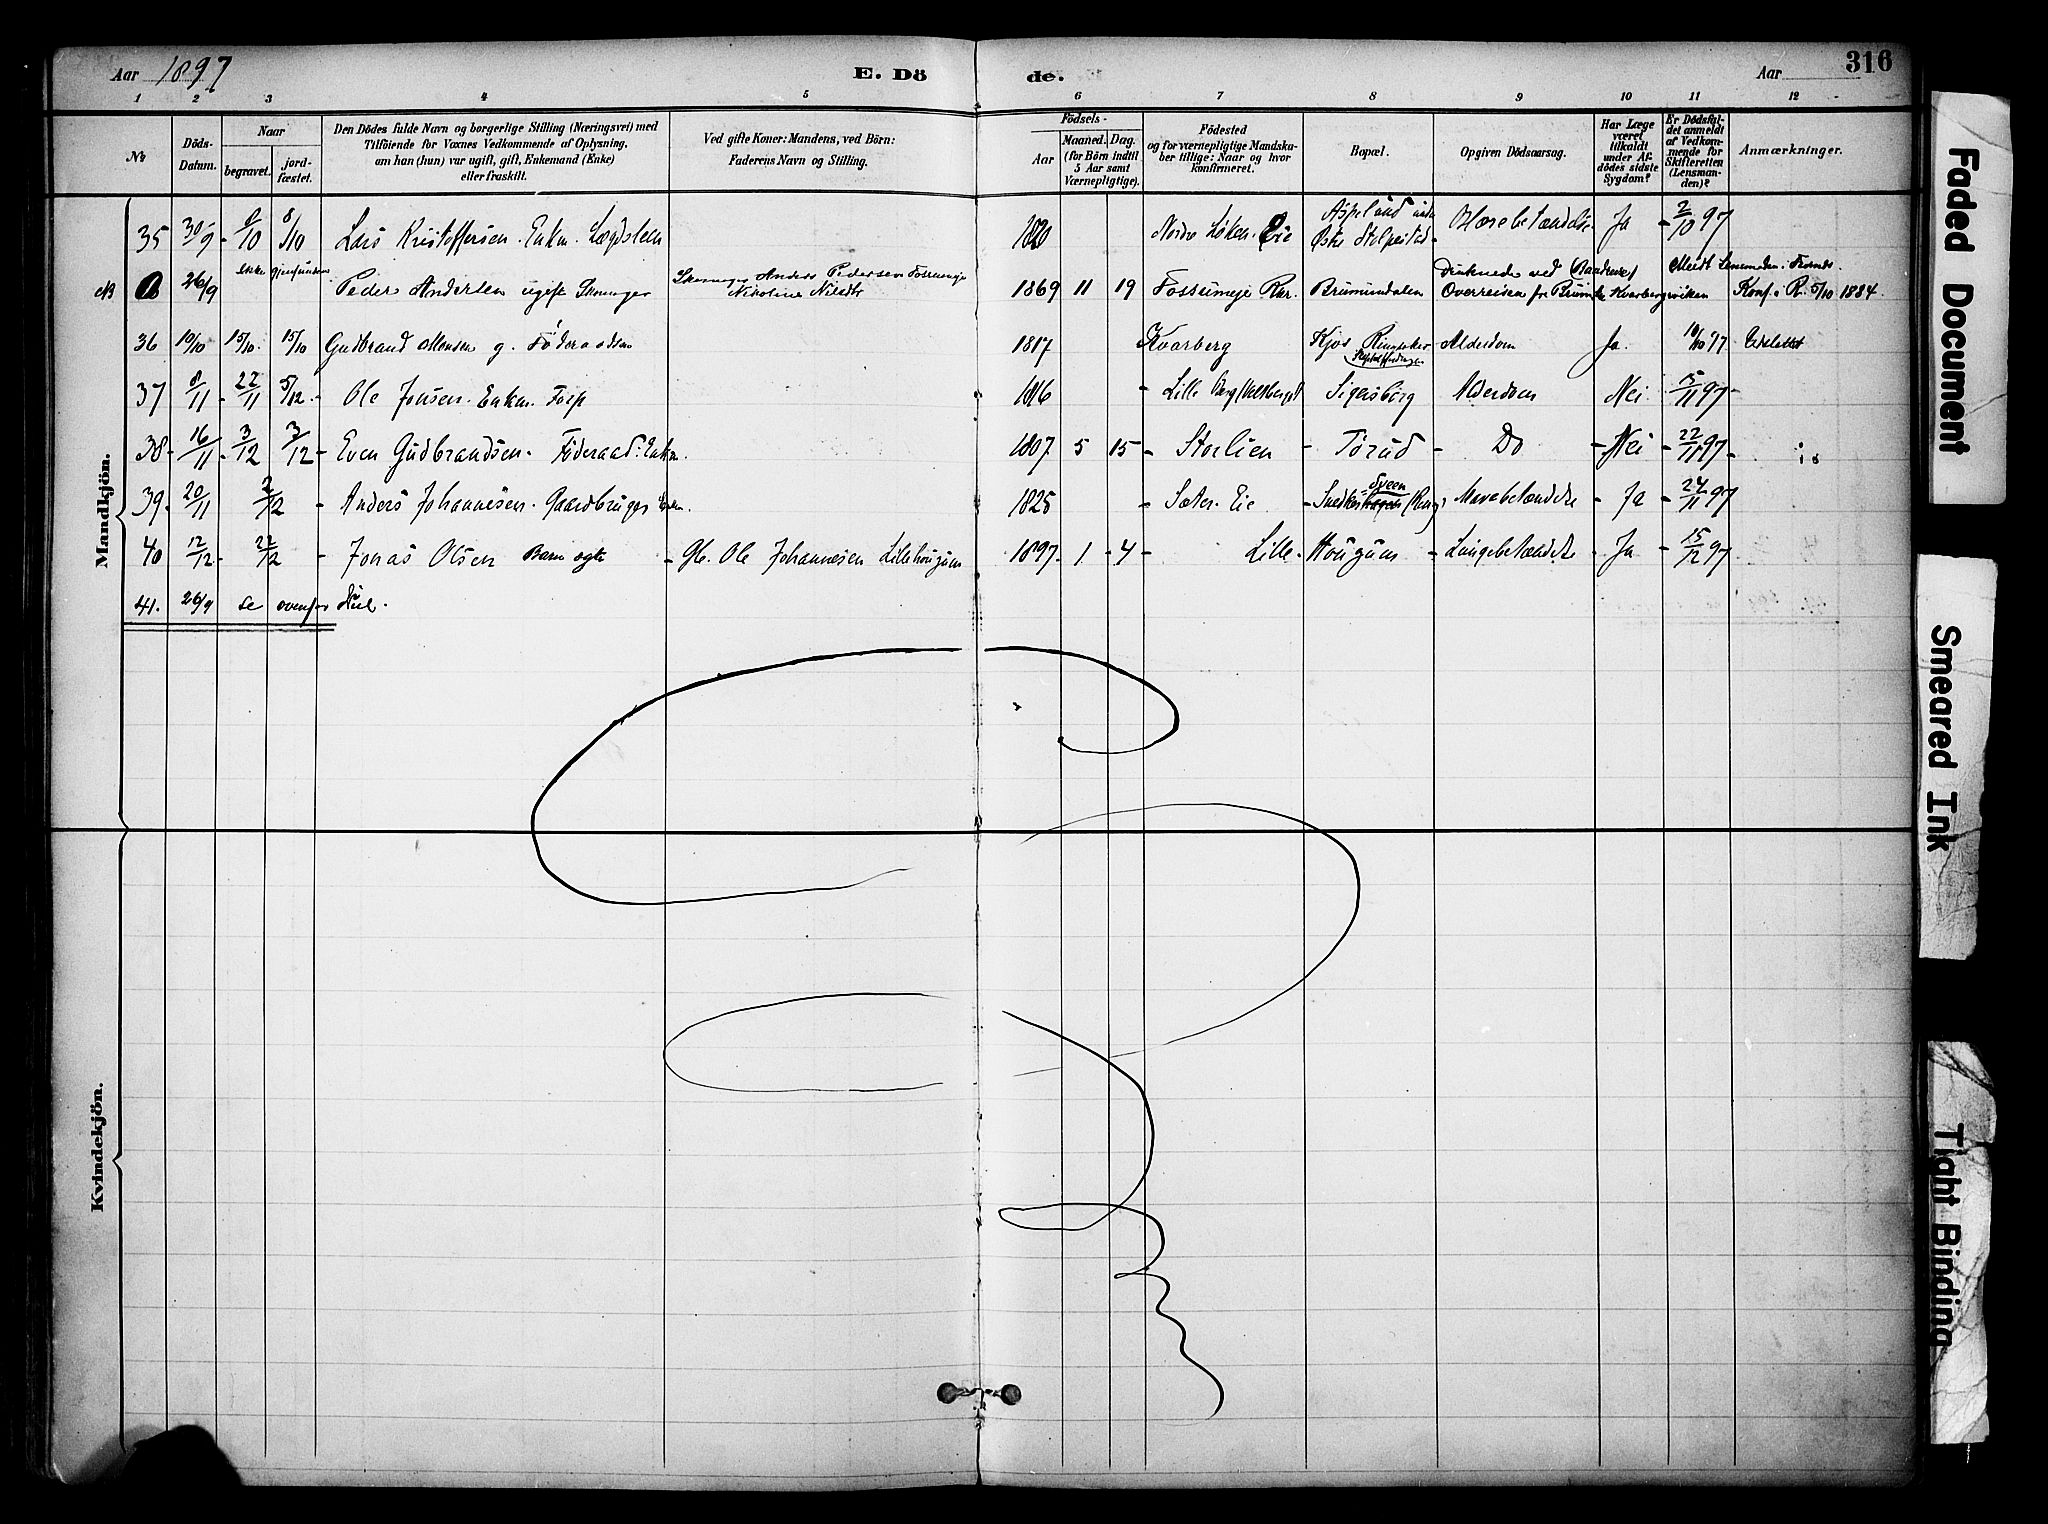 Aar 1897
E. Dö
de.
Aar
316
1 2 3 4 5 6 7 8 9 10 11 12
No
Döds-Datum.
Naar
begravet.
jord-fæstet.
Den Dödes fulde Navn og borgerlige Stilling (Næringsvei) med
Tilföiende for Voxnes Vedkommende af Oplysning,
om han (hun) var ugift, gift, Enkemand (Enke)
eller fraskilt.
Ved gifte Koner: Mandens, ved Börn:
Faderens Navn og Stilling.
Födsels-
Aar
Maaned. Dag.
(for Börn indtil
5 Aar samt
Værnepligtige).
Födested
og for værnepligtige Mandska-
ber tillige: Naar og hvor
konfirmeret.
Bopæl.
Opgiven Dödsaarsag.
Har Læge
været
tilkaldt
under Af-
dödes sidste
Sygdom?
Er Dödsfal-
det anmeldt
af Vedkom-
mende for
Skifteretten
(Lensman-
den)?
Anmærkninger.
Mandkjön.
35 30/9 - 9/10 8/10 Lars Kristoffersen. Enkm. Lægdslem 1820 Nordre Løken. Eie Aspelund Østre Ja - 2/10 97
NB 26/9 ikke gjenfunden Peder Andersen ugift Skomager Skomager Anders Pedersen Fossumeje Nikoline Nilsdtr 1869 11 19 Fossumeje Rbr. Brumundalen Druknede ved Overreisen fr Kvarbergsviken Meldt Lensmanden i Konf. i R. 5/10 1884.
36 10/10 15/10. 15/10 Gudbrand Monsen g. Föderaadsm 1817 Kvarberg Kjos Ringsaker Alderdom Ja. 10/10 97
37 8/11 - 22/11 5/12 - Ole Jonsen. Enkm. 1816 - Lille Berg Sigersborg Alderdom Nei 15/11 97 -
38 - 16/11 - 3/12 3/12 - Even Gudbrandsen - Föderaad. Enkm. 1807 5 15 - Storlien - Torud - Do - Nei - 22/11 97 -
39 - 20/11 2/12 - Anders Johannesen - Gaardbruger Enkm. 1825 - Sæter. Eie - Sveen (Ring) Mavebetændelse - Ja - 24/11 97
40 12/12 - 22/12 - Jonas Olsen Barn ægte - Gb. Ole Johannesen Lillehougum 1897 - 1 - 4 - Lille - Hougum - Lungebetændelse - Ja - 15/12 97
41. 26/9 se ovenfor
Kvindekjön.
Faded Document
Smeared Ink
Tight Binding